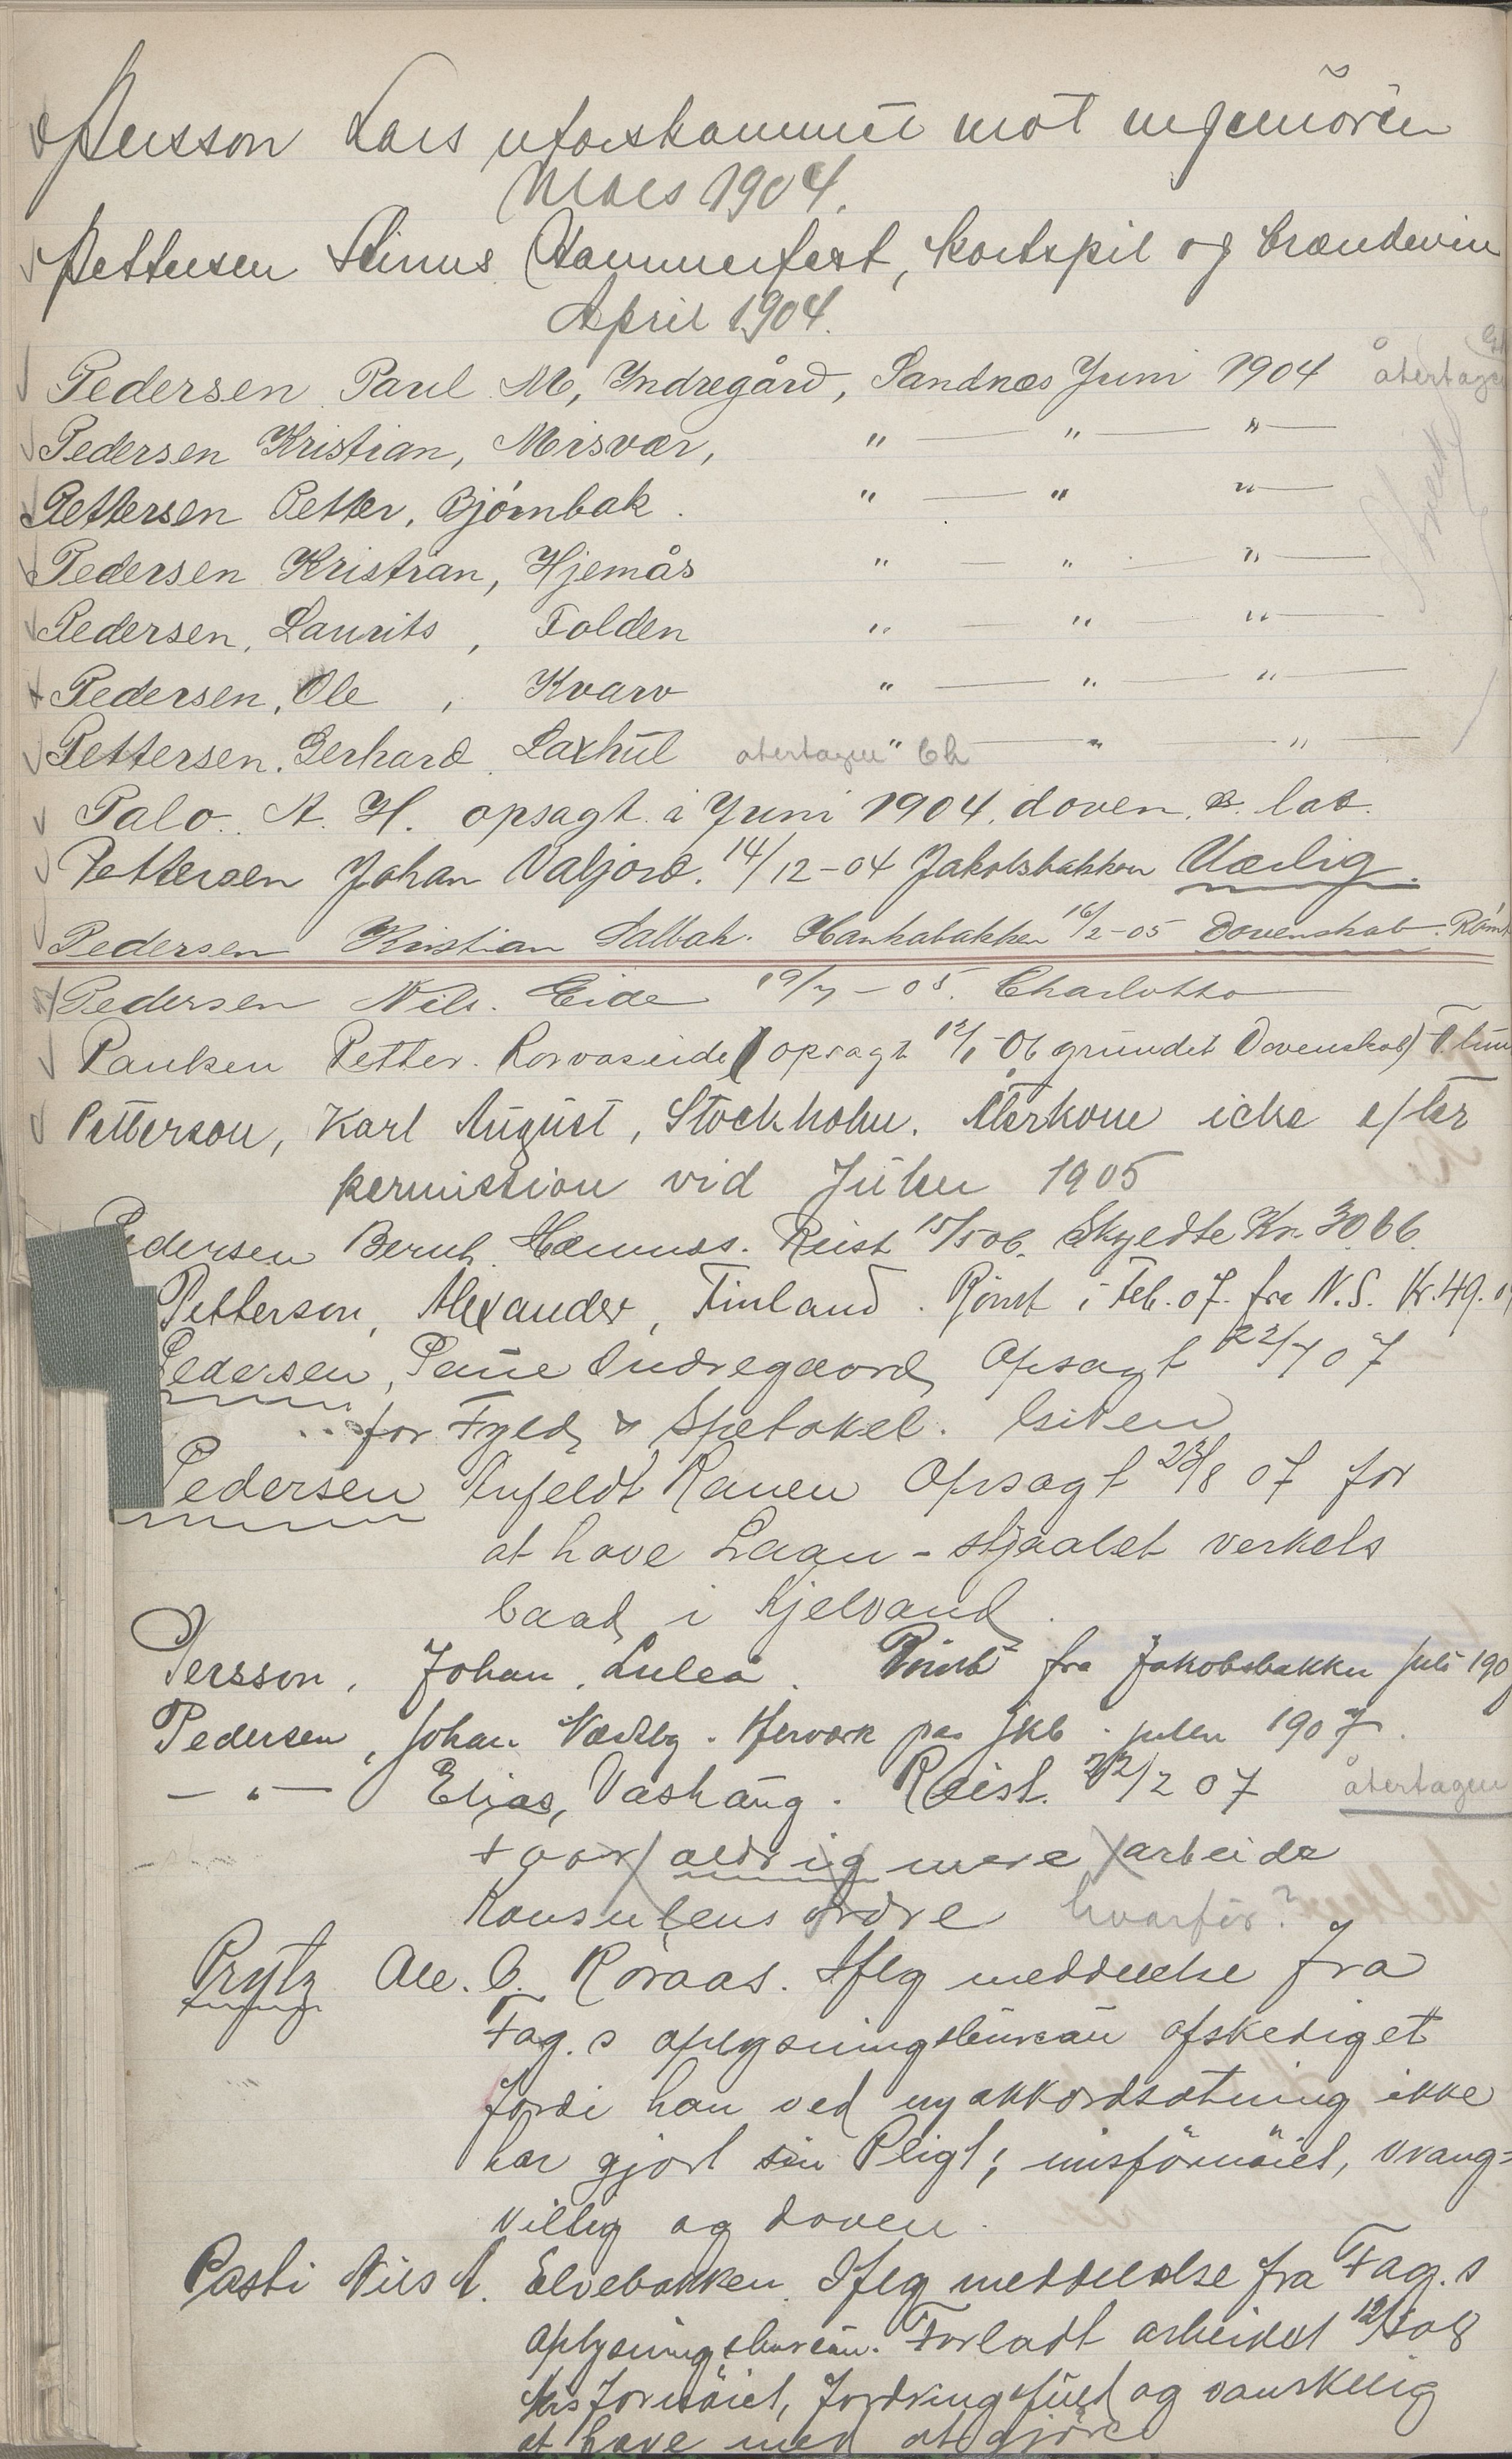 Persson Lars uforskammet mot ingeniören
Mars 1904.
Pettersen Stinus Hammerfest, Kortspil og brændevin
April 1904.
Pedersen Paul M, Yndregård, Sandnæs Juni 1904 återtagen
Pedersen Kristian, Misvær, " — " — " —
Pettersen Petter, Bjørnbak. " — " "—
Pedersen Kristian, Hjemås " — " — " —
Pedersen, Laurits, Folden " — " — " —
Pedersen, Ole, Kvarv " — " — " —
Pettersen, Gerhard, Laxhul återtagen " Ch — " — " —
Palo. A. H. opsagt i Juni 1904. doven & lat.
Pettersen Johan Valjord. 14/12-04 Jakobsbakken Uærlig.
Pedersen Kristian Salbak. Hankabakken 16/2-05 Dovenskab. Rømt
Pedersen Nils. Eide 19/7-05. Charlotta
Paulsen Petter. (opsagt 12/1-06 grundet Dovenskab)
Petterson, Karl August, Stockholm. Återkom icke efter
permission vid Julen 1905
Pedersen Bernh. Hemnæs. Reist 15/5 06. Skyldte Kr. 30.66.
Petterson, Alexander, Finland. Rømt i Feb. 07. fra N.S. Kr. 49.
Pedersen, Paul Indregaard, Opsagt 22/7 07
for Fyld & Spetakel.
Pedersen Anfeldt Ranen Opsagt 23/8 07 for
at have Laan-stjaalet verkets
baad i Kjelvand.
Persson, Johan, Luleå. Rømt fra Jakobsbakken Juli 190
Pedersen, Johan Hærverk paa Jkb. julen 1907.
— " — Elias, Vashaug. Reist. 22/2 07 återtagen
Faar aldrig mere arbeide
Konsulens ordre hvarför?
Prytz Ole. O. Röraas. Iflg meddelelse fra
Fag.s oplysningsbureau afskediget
fordi han ved ny akkordsætning ikke
har gjort sin Pligt; misfornøiet, vrang=
villig og doven.
Pasti Nils A. Elvebakken. Iflg meddelelse fra Fag.s
oplysningsbureau. Forladt arbeidet 12/5 08
Misfornøiet, fordringsfuld og vanskelig
at have med at gjöre